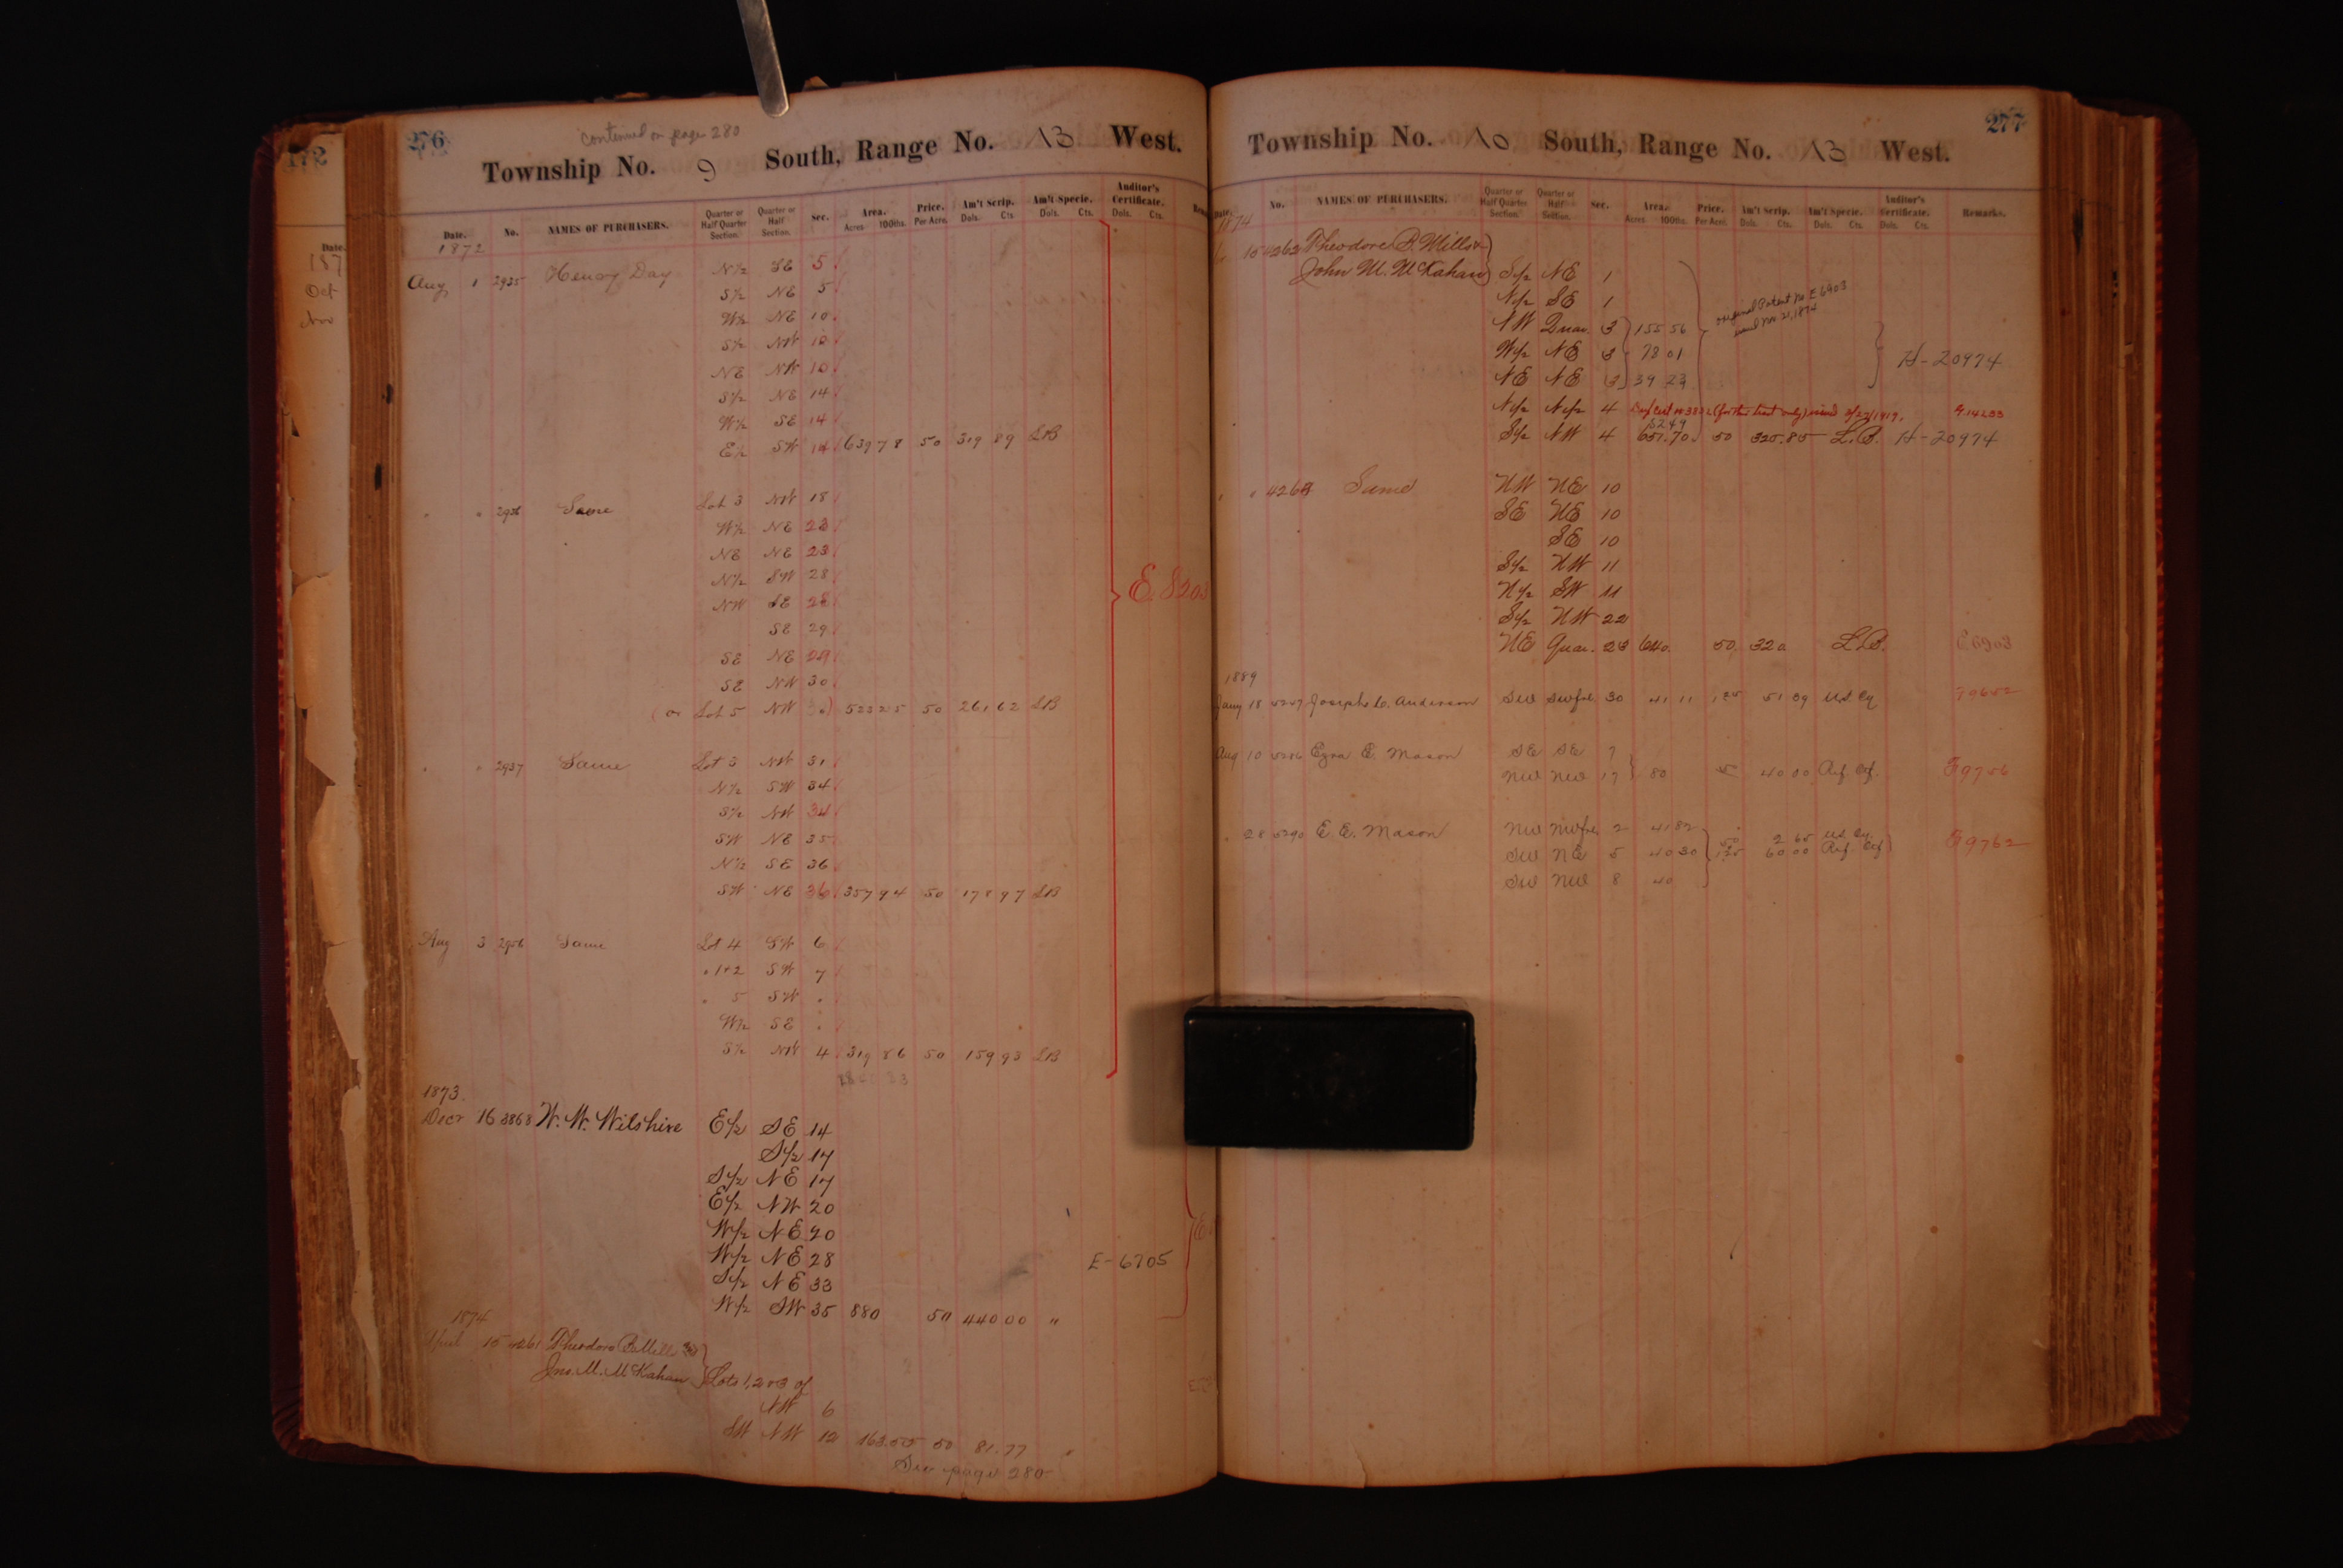 172
Date.
187
Oct
Nov
276
continued on page 280
Township No. 9 South, Range No. 13 West.
Date. No. NAMES OF PURCHASERS. Quarter or Half Quarter Section. Quarter or Half Section. Sec. Area. Acres 100ths. Price. Per Acre. Am't Scrip. Dols. Cts. Am't Specie. Dols. Cts. Auditor's Certificate. Dols. Cts.
1872
Aug 1 2935 Henry Day N½ SE 5
S½ NE 5
W½ NE 10
S½ NW 10
NE NW 10
S½ NE 14
W½ SE 14
E½ SW 14 639 78 50 319 89 LB
" " 2936 Same Lot 3 NW 18
W½ NE 23
NE NE 23
N½ SW 28
NW SE 28
SE 29
SE NE 29
SE NW 30
(or Lot 5 NW 30) 523 25 50 261 62 LB
E 8203
" " 2937 Same Lot 3 NW 31
N½ SW 34
S½ NW 34
SW NE 35
N½ SE 36
SW NE 36 357 94 50 178 97 LB
Aug 3 2956 Same Lot 4 SW 6
" 1+2 SW 7
" 5 SW "
W½ SE "
S½ NW 4 319 86 50 159 93 LB
1873.
Decr 16 3868 W. W. Wilshire E½ SE 14
S½ 17
S½ NE 17
E½ NW 20
W½ NE 20
W½ NE 28
E-6705
S½ NE 33
W½ SW 35 880 50 440 00 "
1874
April 15 4261 Theodore B. Mills &
Jno. M. McKahan Lots 1, 2 & 3 of
NW 6
SW NW 12 163.55 50 81.77 "
See page 280
277
Township No. 10 South, Range No. 13 West.
Date. No. NAMES OF PURCHASERS. Quarter or Half Quarter Section. Quarter or Half Section. Sec. Area. Acres 100ths. Price. Per Acre. Am't Scrip. Dols. Cts. Am't Specie. Dols. Cts. Auditor's Certificate. Dols. Cts. Remarks.
1874
15 4262 Theodore B. Mills &
John M. McKahan S½ NE 1
N½ SE 1
original Patent No E6903
issued Nov 21, 1874
NW Quar. 3 155 56
W½ NE 3 78 01 H-20974
NE NE 3 39 23
N½ N½ 4 (for this tract only) issued 9/22/1919. G14233
S½ NW 4 651.70 50 325.85 L.B. H-20974
" " 4264 Same NW NE 10
SE NE 10
SE 10
S½ NW 11
N½ SW 11
S½ NW 22
NE Quar. 23 640. 50 320 L.B. E6903
1889
Jany 18 5247 Joseph C. Anderson SW SWfrl 30 41 11 1.25 51 39 U.S. Cy F9652
Aug 10 5286 Ezra E. Mason SE SE 7
NW NW 17 80 50 40 00 F9756
" 28 5290 E. E. Mason NW NWfrl 2 41 82 2 65 U.S. Cy.
SW NE 5 40 30 60 00 F9762
SW NW 8 40